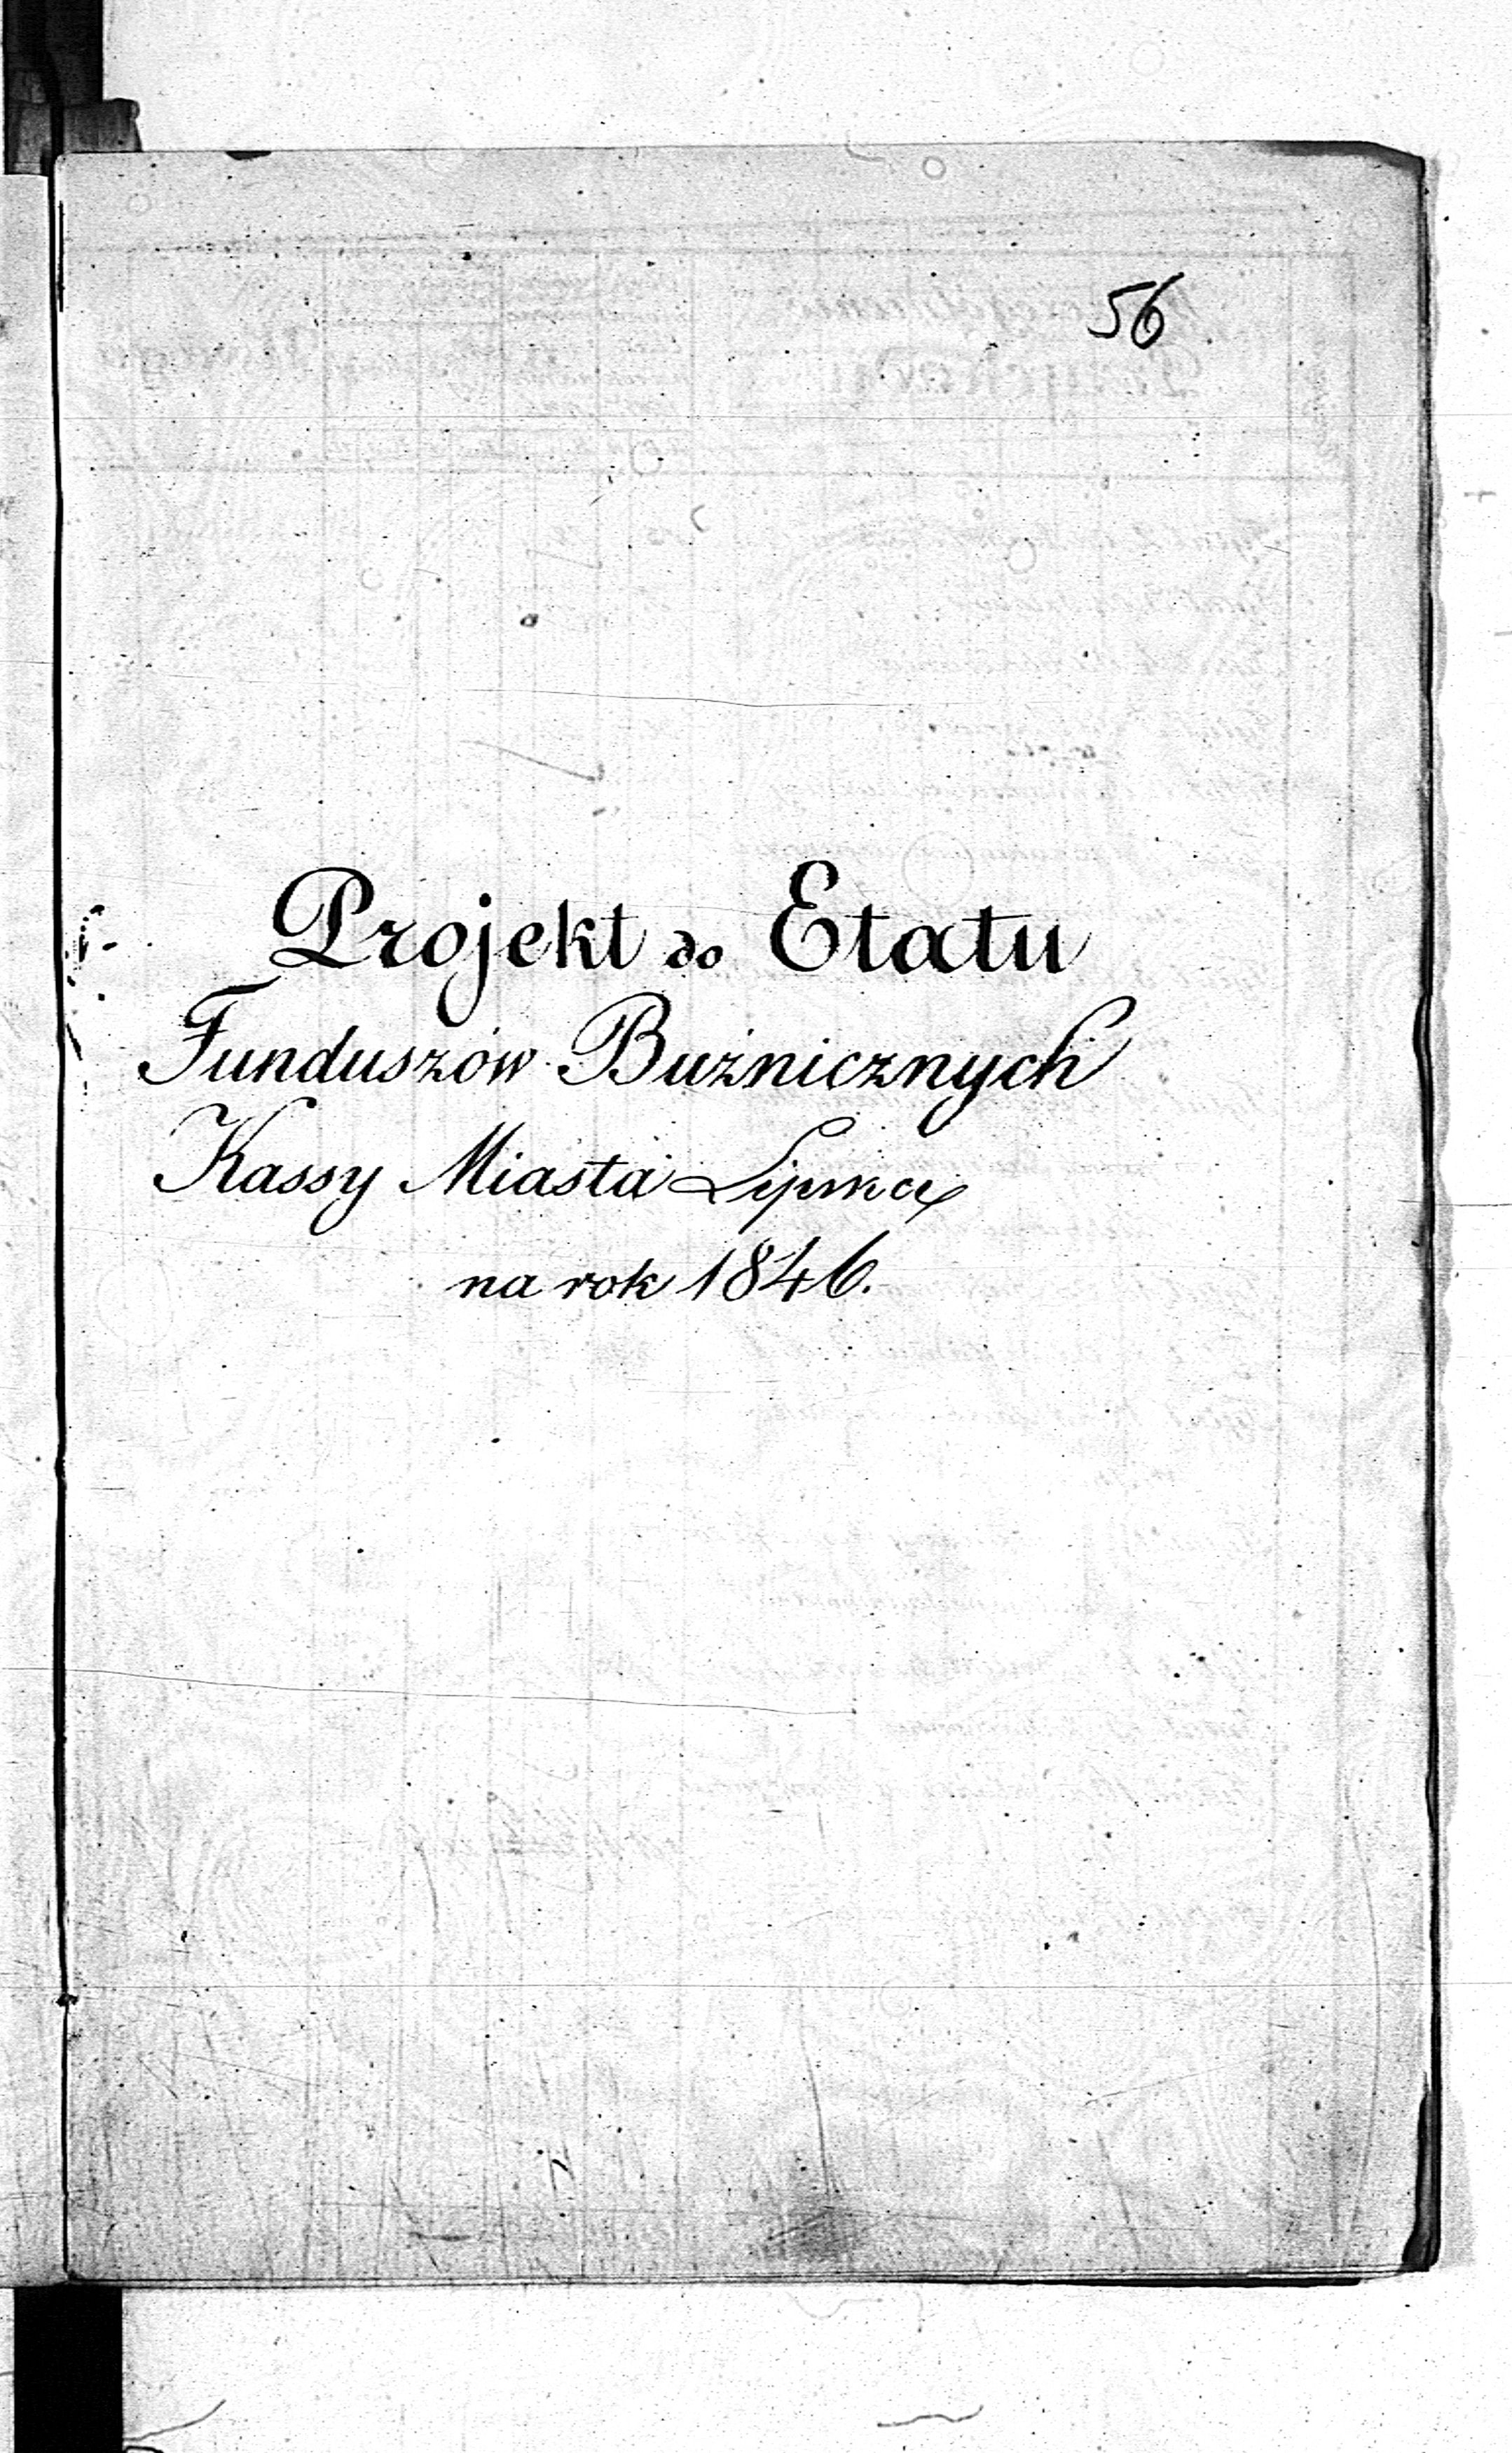 56
Projekt do Etatu
Funduszów Bużnicznych
Kassy Miasta Lipna
na rok 1846.